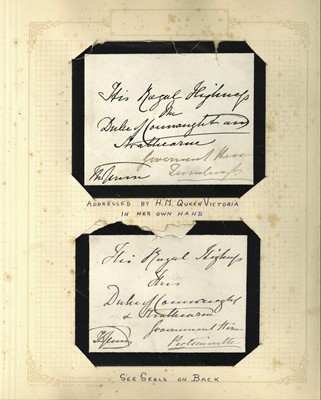 His Royal Highness
The
Duke of Connaught and
Strathearne
Government House
The Queen
ADDRESSED BY H.M. QUEEN VICTORIA
IN HER OWN HAND
His Royal Highness
The
Duke of Connaught
& Strathearn
Government House
The Queen
Portsmouth
SEE SEALS ON BACK